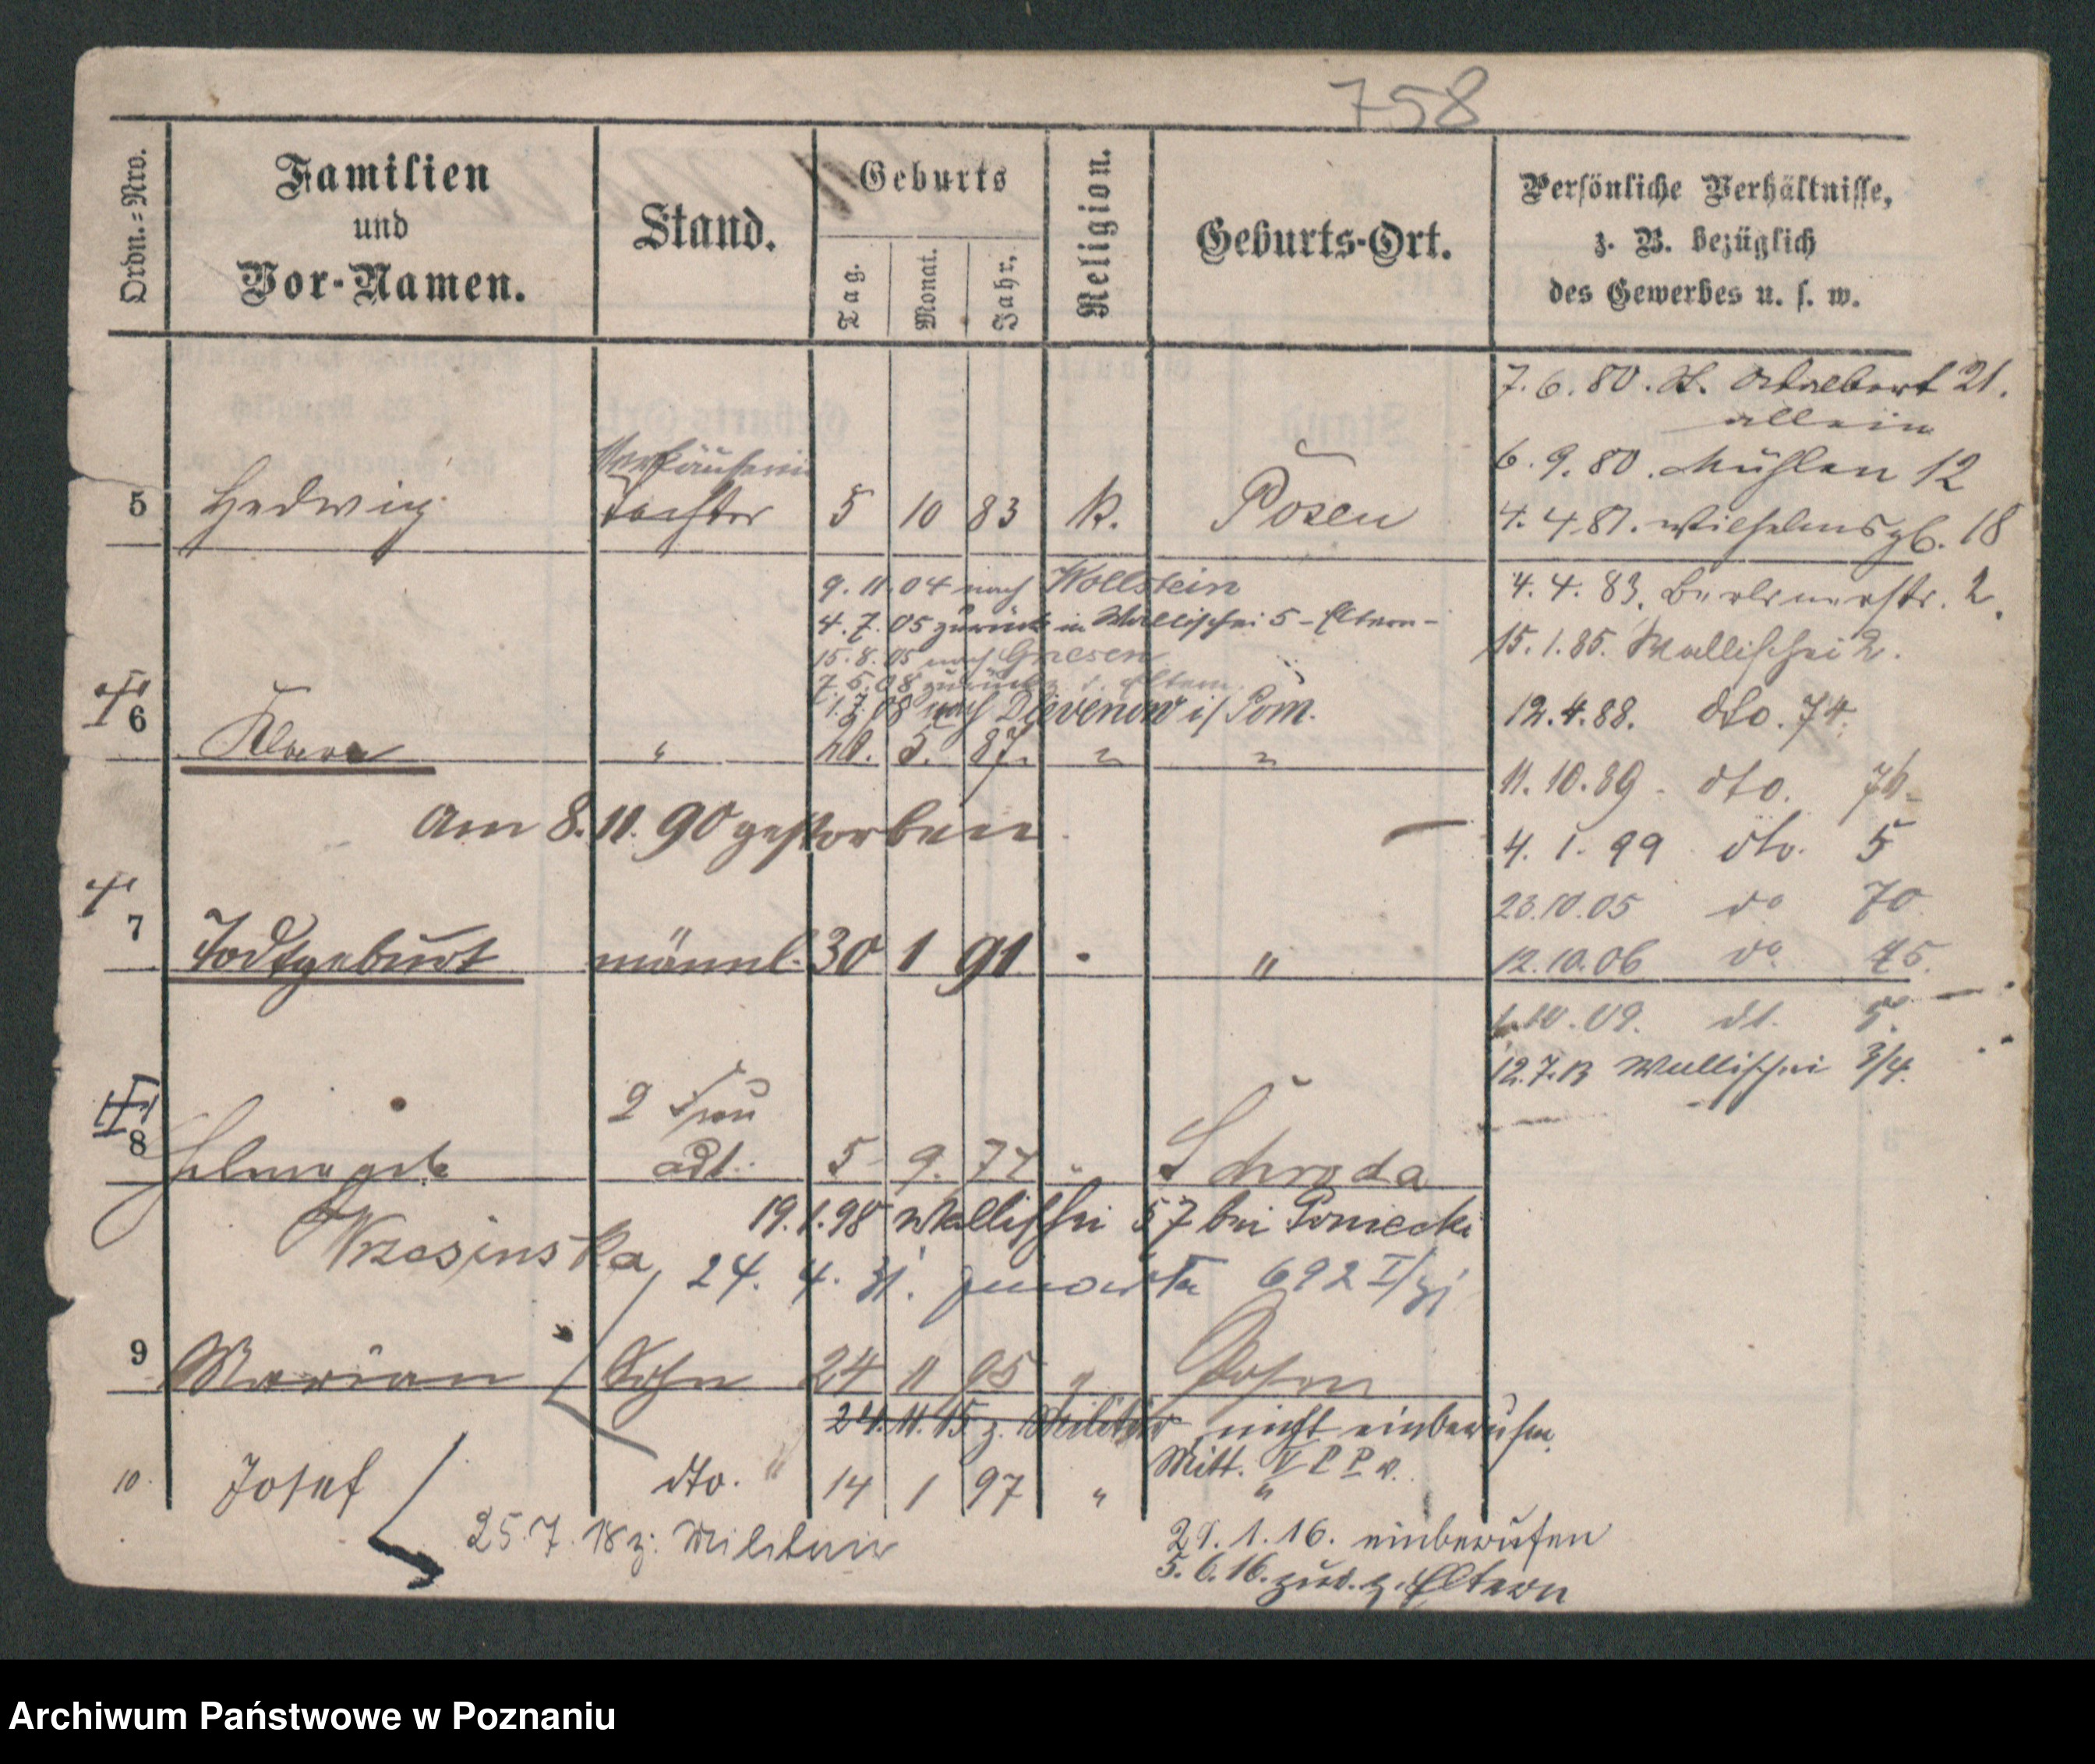 758
Ordn.-Nro.
Familien
und
Vor-Namen.
Stand.
Geburts
Tag.
Monat.
Jahr.
Religion.
Geburts-Ort.
Persönliche Verhältnisse,
z. B. bezüglich
des Gewerbes u. s. w.
7. 6. 80. St. Adalbert 21.
allein
6. 9. 80. Mühlen 12
4. 4. 81. Wilhelmspl. 18
4. 4. 83. Berlinerstr. 2.
15. 1. 85. Wallischei 2.
12. 4. 88. dto. 74.
11. 10. 89. dto. 76.
4. 1. 99 dto. 5
23. 10. 05 do 70
12. 10. 06 do 45.
1. 10. 09. dt. 5.
12. 7. 13 Wallischei 3/4.
Verkäuferin
5 Hedwig Tochter 5 10 83 K. Posen
9. 11. 04 nach Wollstein
4. 7. 05 zurück in Wallischei 5 - Eltern -
15. 8. 05 nach Gnesen
7. 5. 08 zurück z. d. Eltern
1. 7. 08 nach Dievenow i/ Pom.
6 Klara " 5. 87. " "
am 8. 11. 90 gestorben
7 Todtgeburt männl. 30 1 91 - "
2 Frau
8 Helene geb. adl. 5 9. 77 " Schroda
Wrzesinska
19. 1. 98 Wallischei 57 bei Poniecki
24. 4. 31. 692 I/31
9 Marian Sohn 24 11 95 " Posen
24. 11. 15 z. Militär, nicht einberufen.
Mitt. V P P v.
10. Josef dto. " 14 1 97 " "
25. 7. 18 z. Militair
29. 1. 16. einberufen
5. 6. 16. zur. z. Eltern
Archiwum Państwowe w Poznaniu